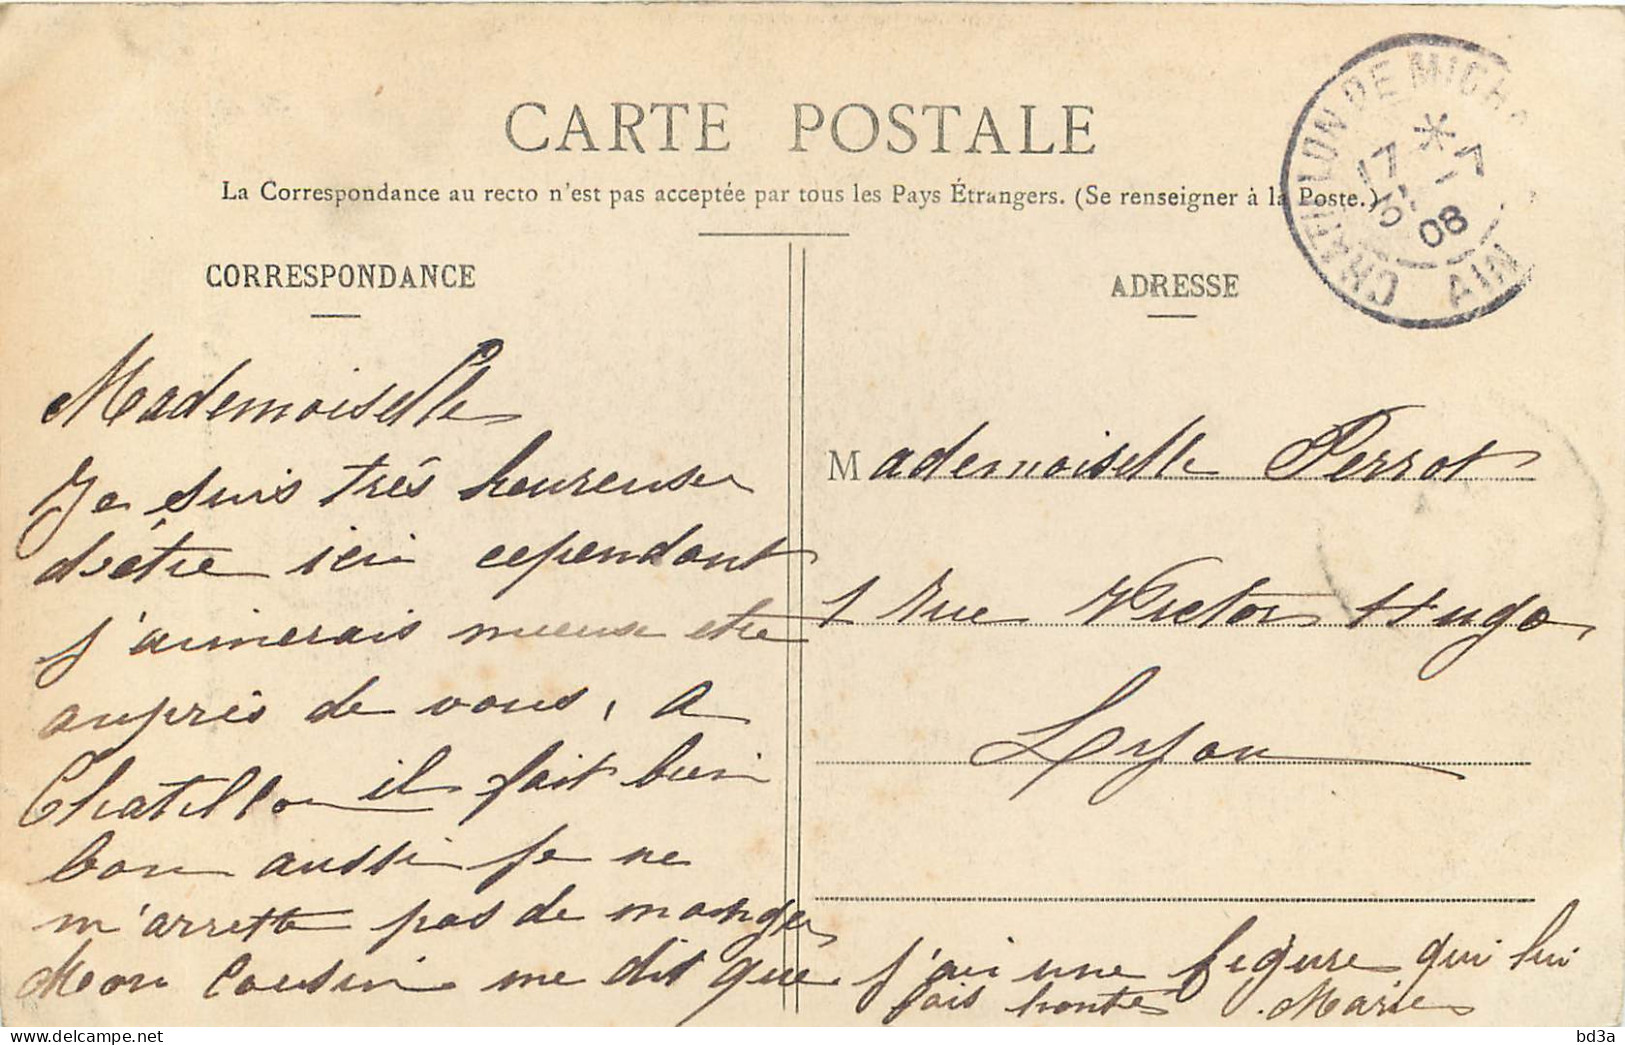 CARTE POSTALE
La Correspondance au recto n'est pas acceptée par tous les Pays Étrangers. (Se renseigner à la Poste.)
CORRESPONDANCE
Mademoiselle
Je suis très heureuse
d'être ici cependant
j'aimerais mieux etre
auprès de vous, a
Chatillon il fait bien
bon aussi je ne
m'arrette pas de manger
Mon Cousin me dit que j'ai une figure qui lui
fais honte Marie
ADRESSE
Mademoiselle Perrot
1 Rue Victor Hugo
Lyon
CHATILLON DE MICH
17 08
AIN
bd3a